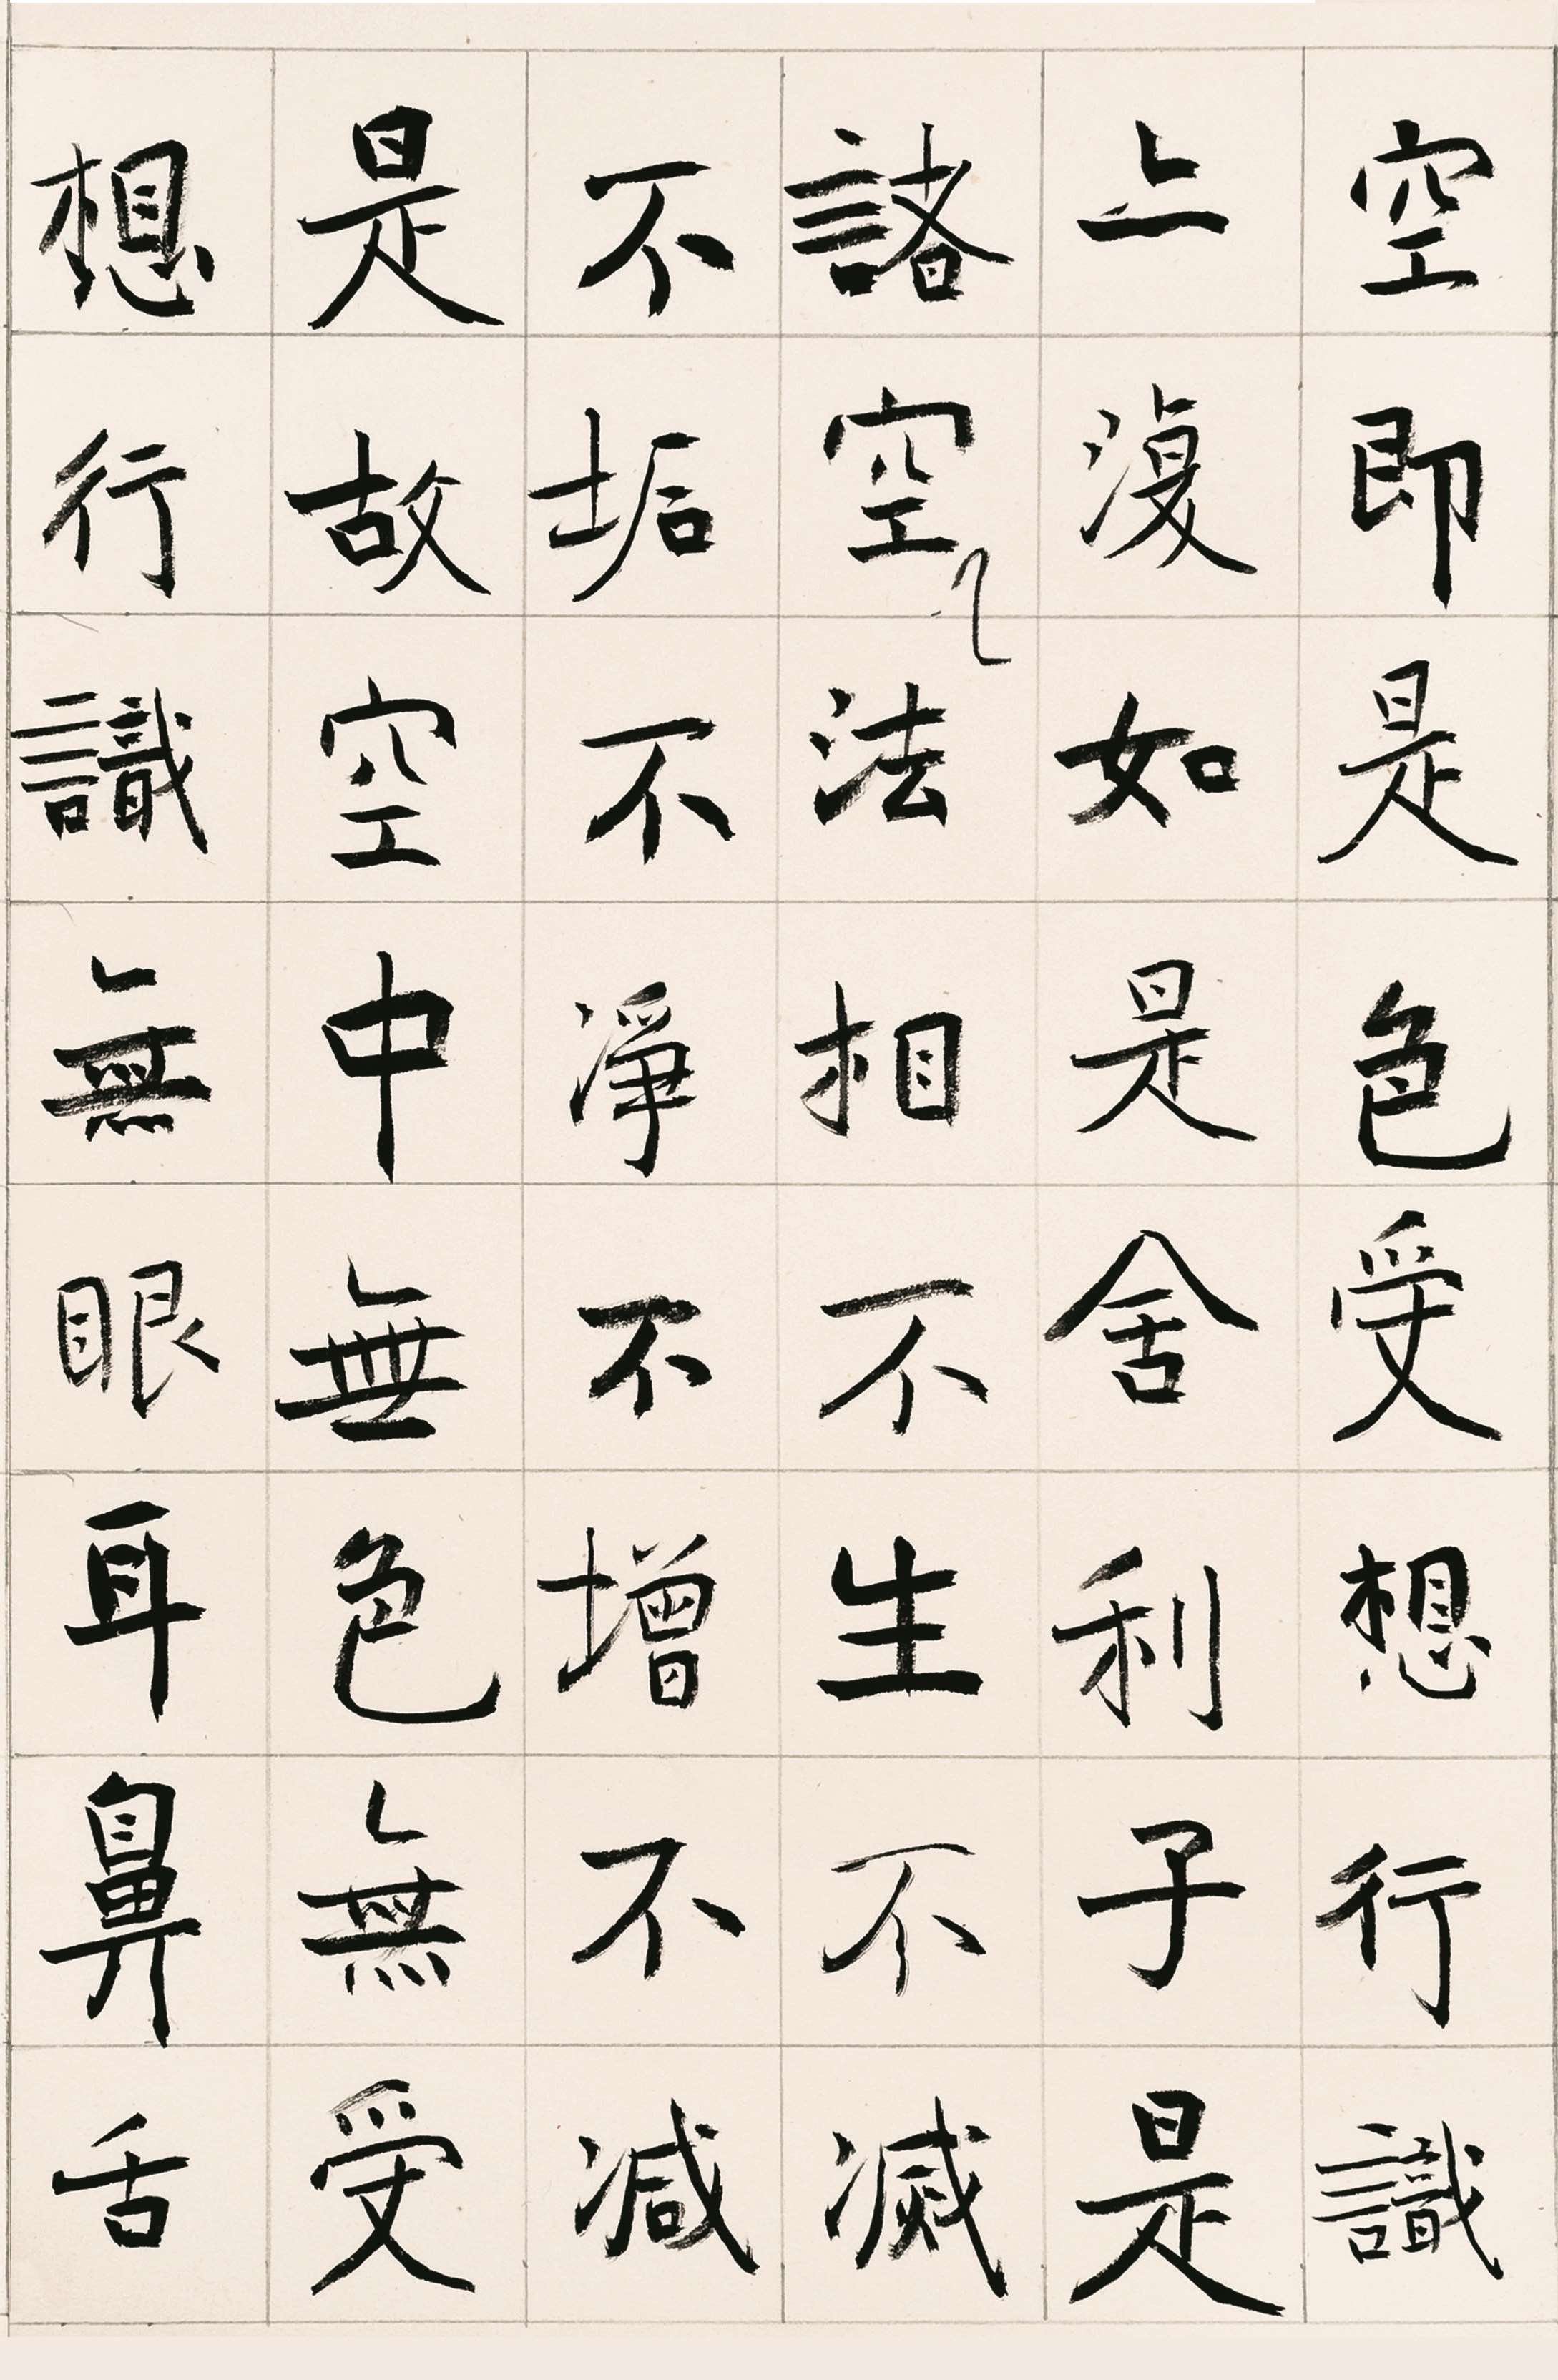 空即是色受想行識
亦復如是舍利子是
諸空法相不生不滅
不垢不淨不增不減
是故空中無色無受
想行識無眼耳鼻舌